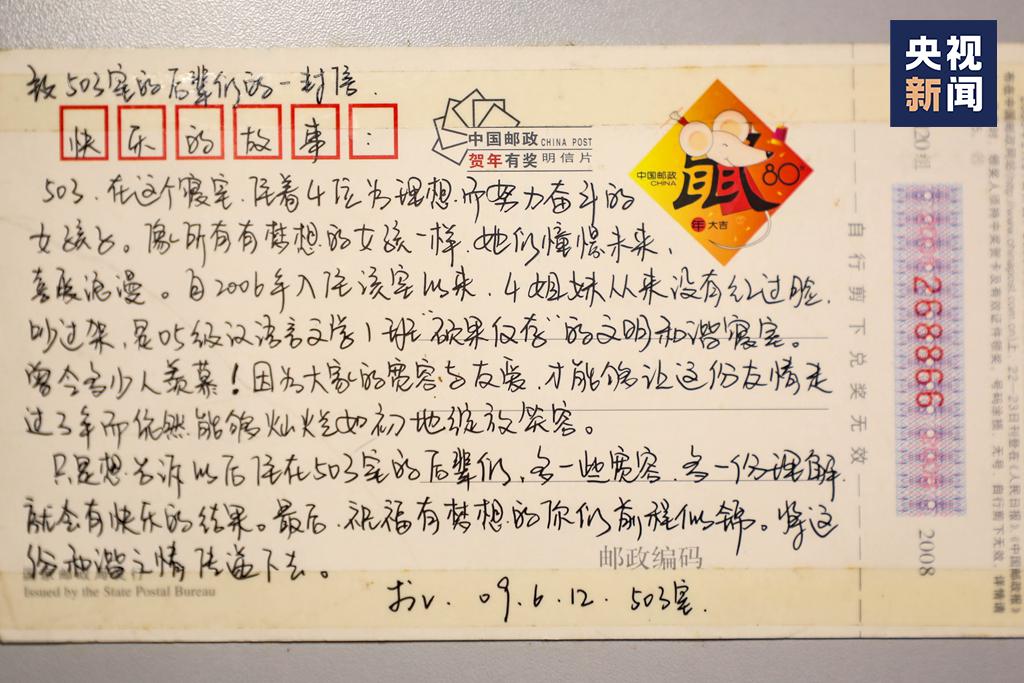 央视
新闻
致503室的后辈们的一封信.
快乐的故事:
中国邮政 CHINA POST
贺年有奖 明信片
中国邮政
CHINA
鼠
80分
年大吉
503.在这个寝室.住着4位为理想而努力奋斗的
女孩子。像所有有梦想的女孩一样,她们憧憬未来,
喜欢浪漫。自2006年入住该室以来.4姐妹从来没有红过脸.
吵过架,是05级汉语言文学1班"硕果仅存"的文明和谐寝室。
曾令多少人羡慕!因为大家的宽容与友爱,才能够让这份友情走
过3年而依然能够灿烂如初地绽放笑容。
只是想告诉以后住在503室的后辈们,多一些宽容.多一份理解.
就会有快乐的结果。最后.祝福有梦想的你们前程似锦。将这
份和谐之情传递下去。
邮政编码
Issued by the State Postal Bureau
09.6.12. 503室.
自行剪下兑奖无效
268866
2008